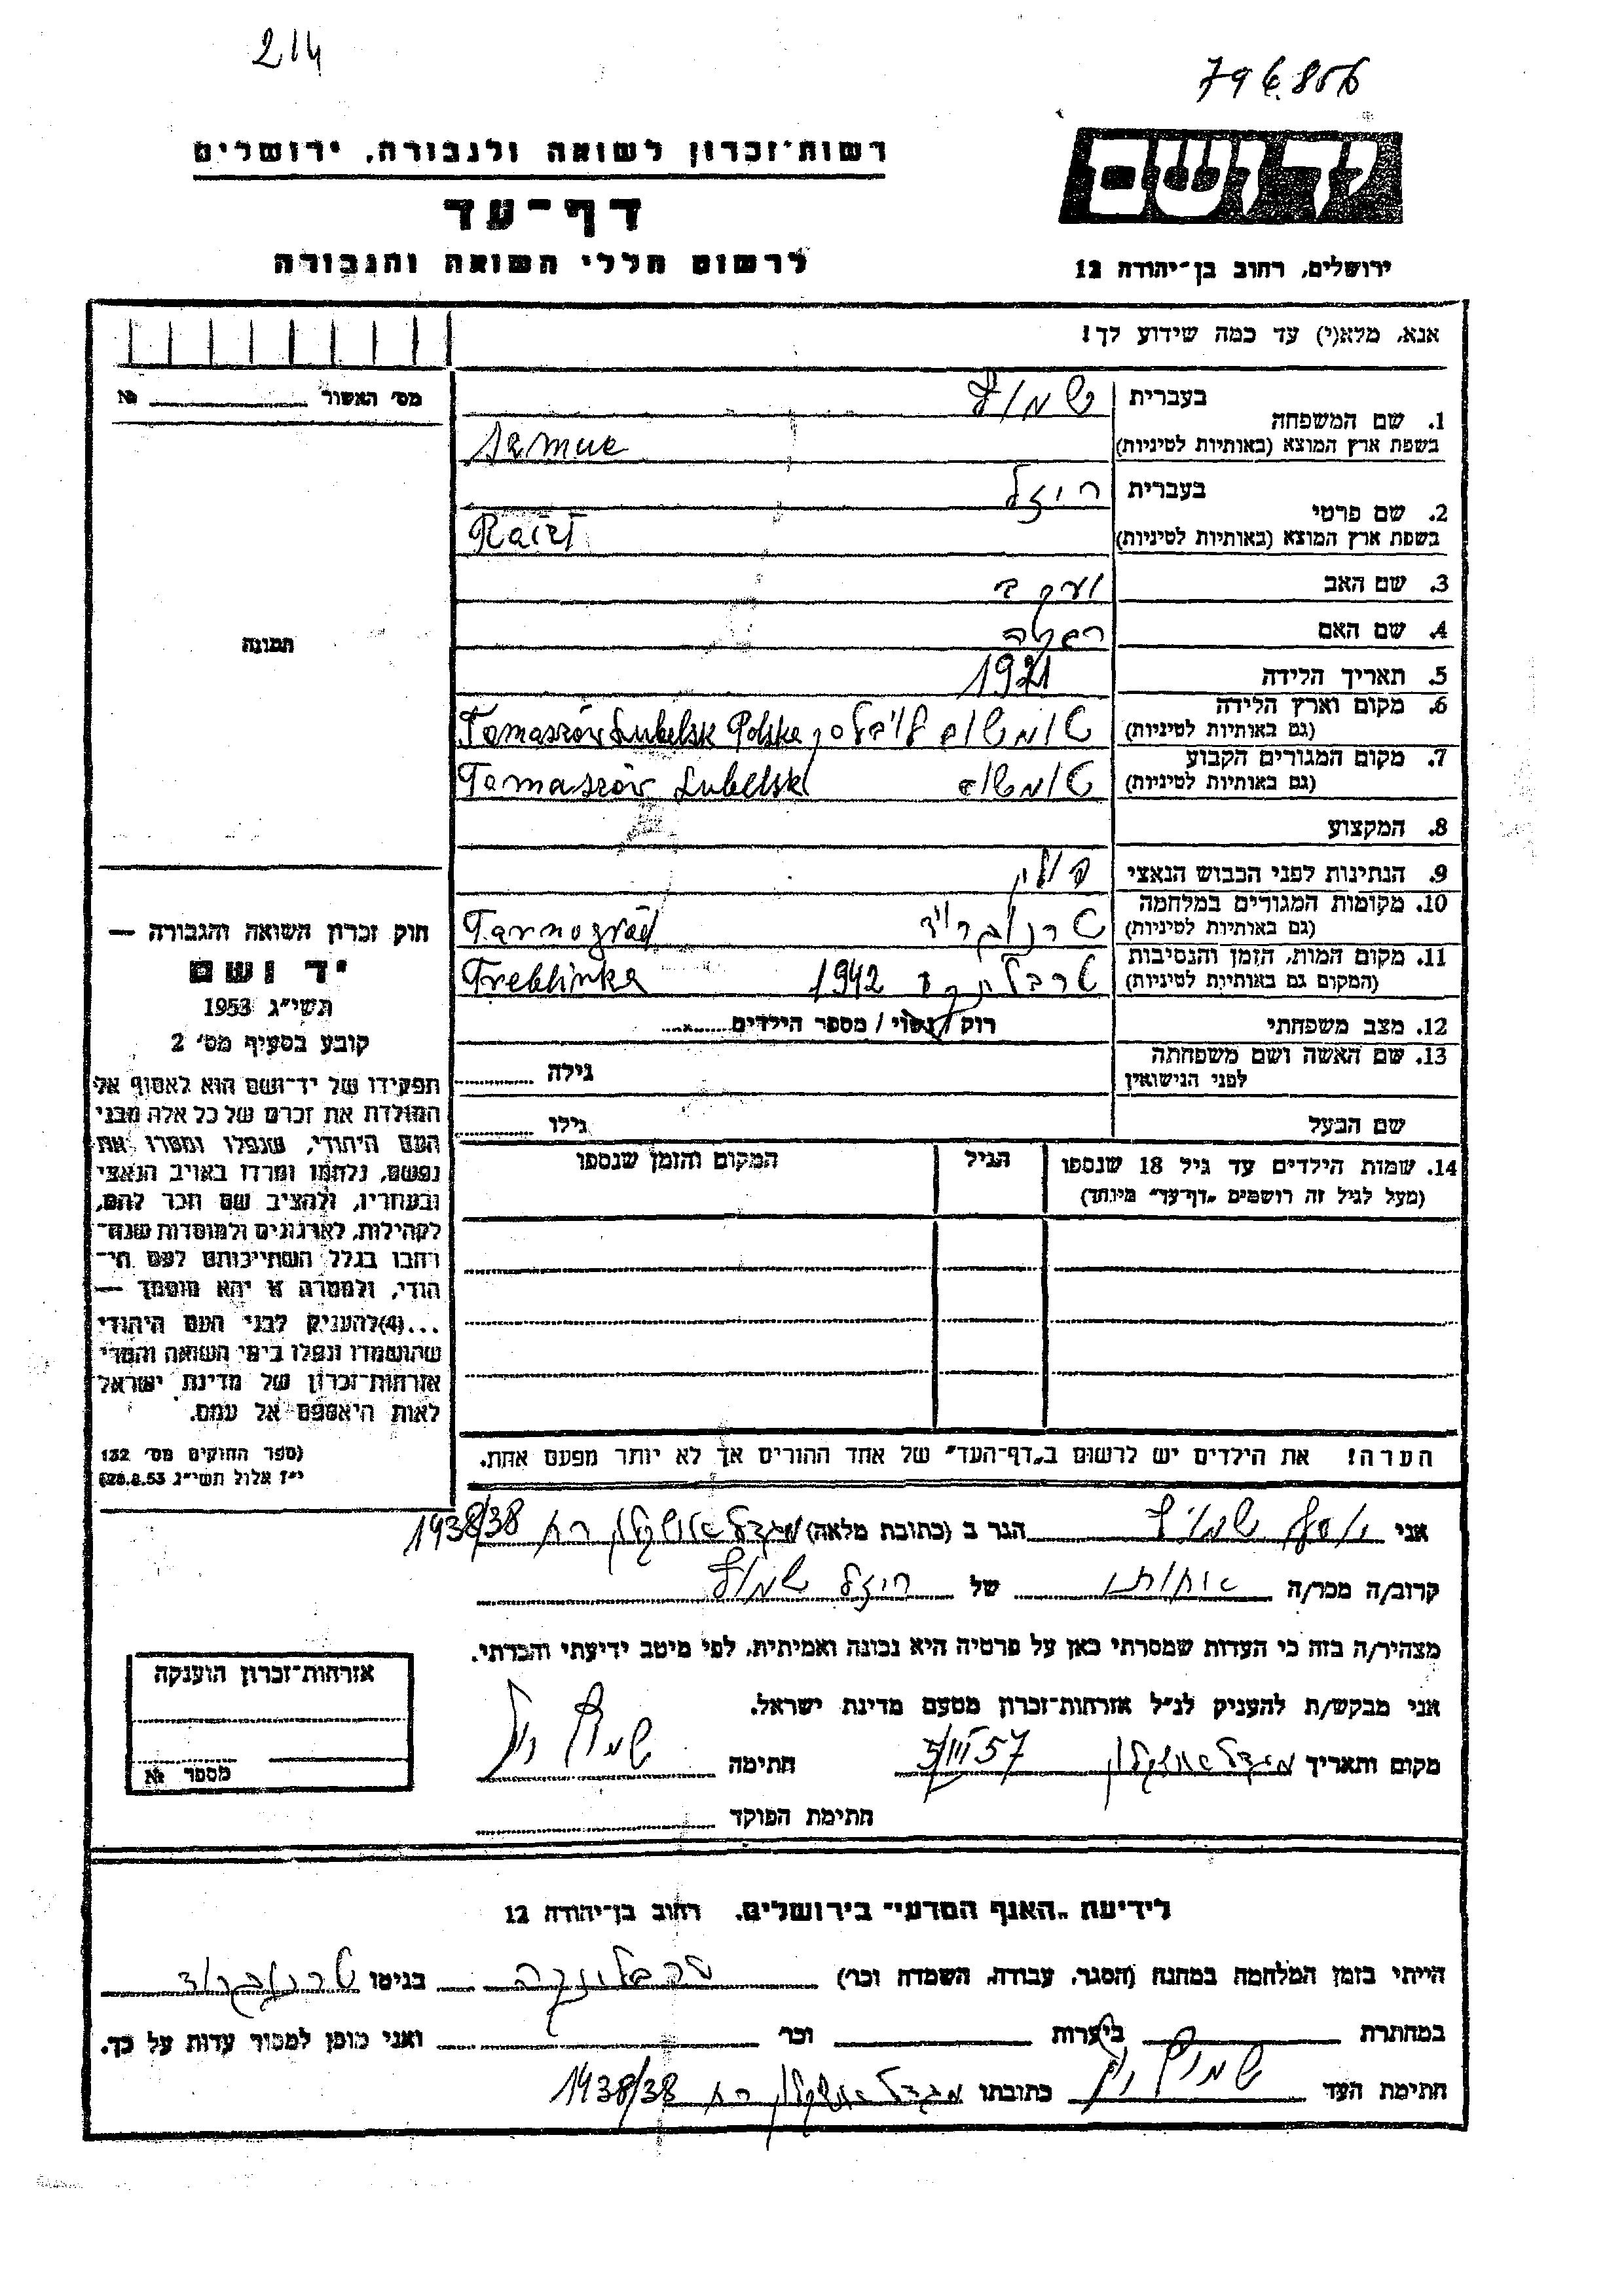 214
796.856
רשות־זכרון לשואה ולגבורה, ירושלים
דף־עד
לרשום חללי השואה והגבורה
ידושם
ירושלים, רחוב בן־יהודה 12
אנא, מלא(י) עד כמה שידוע לך!
מס׳ האשור № 
תמונה
חוק זכרון השואה והגבורה —
יד ושם
תשי״ג 1953
קובע בסעיף מס׳ 2
תפקידו של יד־ושם הוא לאסוף אל
המולדת את זכרם של כל אלה מבני
העם היהודי, שנפלו ומסרו את
נפשם, נלחמו ומרדו באויב הנאצי
ובעוזריו, ולהציב שם וזכר להם,
לקהילות, לארגונים ולמוסדות שנח־
רבו בגלל השתייכותם לעם הי־
הודי, ולמטרה זו יהא מוסמך —
...(4)להעניק לבני העם היהודי
שהושמדו ונפלו בימי השואה והמרי
אזרחות־זכרון של מדינת ישראל
לאות היאספם אל עמם.
(ספר החוקים מס׳ 132
י״ז אלול תשי״ג 28.8.53)
1. שם המשפחה בעברית
בשפת ארץ המוצא (באותיות לטיניות) Szmue
2. שם פרטי בעברית ריזל
בשפת ארץ המוצא (באותיות לטיניות) Raizl
3. שם האב יעקב
4. שם האם
5. תאריך הלידה 1921
6. מקום וארץ הלידה (גם באותיות לטיניות) Tomaszów Lubelsk Polska
7. מקום המגורים הקבוע (גם באותיות לטיניות) Tomaszów Lubelsk
8. המקצוע
9. הנתינות לפני הכבוש הנאצי פולין
10. מקומות המגורים במלחמה (גם באותיות לטיניות) טרנוגרוד Tarnogród
11. מקום המות, הזמן והנסיבות (המקום גם באותיות לטיניות) טרבלינקה 1942 Treblinka
12. מצב משפחתי רוק / נשוי / מספר הילדים
13. שם האשה ושם משפחתה לפני הנישואין גילה
שם הבעל גילו
14. שמות הילדים עד גיל 18 שנספו הגיל המקום והזמן שנספו
(מעל לגיל זה רושמים „דף־עד״ מיוחד)
הערה! את הילדים יש לרשום ב„דף־העד״ של אחד ההורים אך לא יותר מפעם אחת.
אני יוסף הגר ב (כתובת מלאה) מגדל אשקלון 1938/38
קרוב/ה מכר/ה של ריזל
מצהיר/ה בזה כי העדות שמסרתי כאן על פרטיה היא נכונה ואמיתית, לפי מיטב ידיעתי והכרתי.
אני מבקש/ת להעניק לנ״ל אזרחות־זכרון מטעם מדינת ישראל.
מקום ותאריך מגדל אשקלון III 57 חתימה
חתימת הפוקד
אזרחות־זכרון הוענקה
מספר №
לידיעת „האגף המדעי״ בירושלים, רחוב בן־יהודה 12
הייתי בזמן המלחמה במחנה (הסגר, עבודה, השמדה וכר׳) טרבלינקה בגיטו טרנוגרוד
במחתרת ביערות וכר׳ ואני מוכן למסור עדות על כך.
חתימת העד כתובתו מגדל אשקלון 1938/38